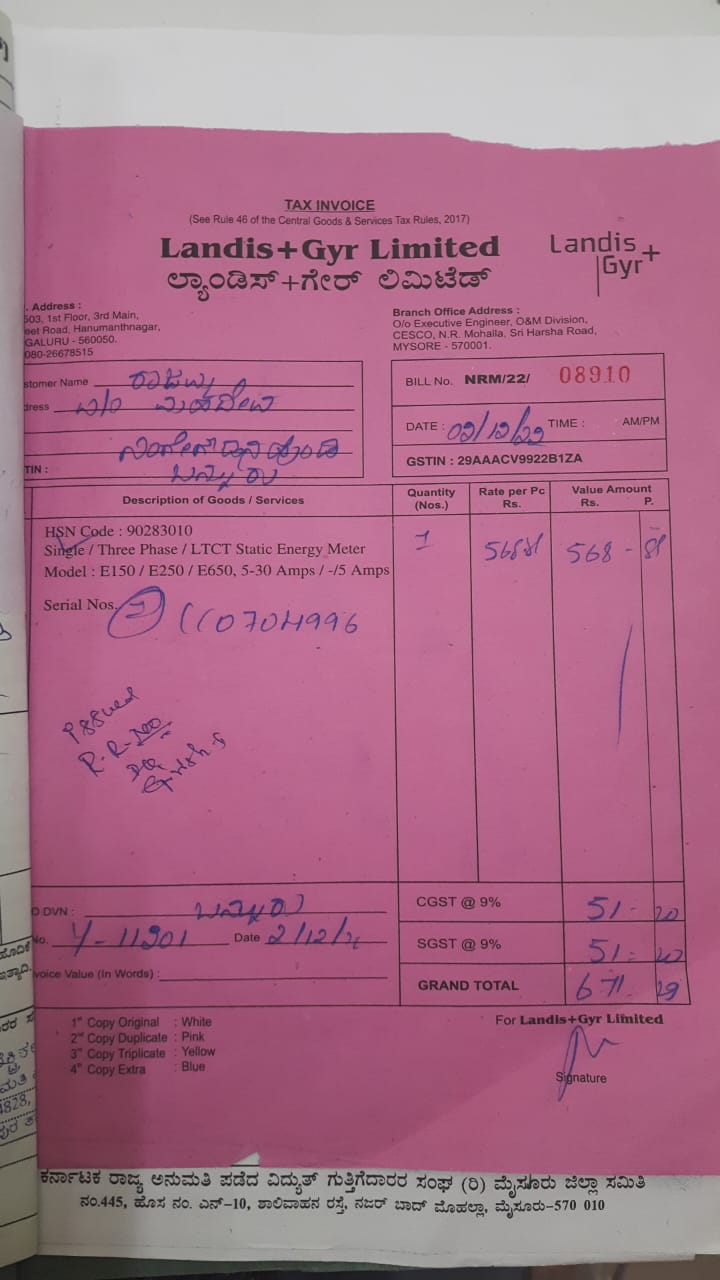 TAX INVOICE
(See Rule 46 of the Central Goods & Services Tax Rules, 2017)
Landis+Gyr Limited
ಲ್ಯಾಂಡಿಸ್+ಗೇರ್ ಲಿಮಿಟೆಡ್
Landis
Gyr+
. Address :
503, 1st Floor, 3rd Main,
eet Road, Hanumanthnagar,
GALURU - 560050.
080-26678515
Branch Office Address :
O/o Executive Engineer, O&M Division,
CESCO, N.R. Mohalla, Sri Harsha Road,
MYSORE - 570001.
stomer Name
dress
ಬನ್ನೂರು
TIN :
BILL No. NRM/22/ 08910
DATE : 02/12/22 TIME : AM/PM
GSTIN : 29AAACV9922B1ZA
Description of Goods / Services
Quantity (Nos.)
Rate per Pc Rs.
Value Amount Rs. P.
HSN Code : 90283010
Single / Three Phase / LTCT Static Energy Meter
Model : E150 / E250 / E650, 5-30 Amps / -/5 Amps
1 568 81 568 - 81
Serial Nos.
Issued
D DVN : ಬನ್ನೂರು
No. Y-11901 Date 2/12/22
voice Value (In Words) :
CGST @ 9% 51 - 20
SGST @ 9% 51 - 20
GRAND TOTAL 671. 29
1st Copy Original : White
2nd Copy Duplicate : Pink
3rd Copy Triplicate : Yellow
4th Copy Extra : Blue
For Landis+Gyr Limited
Signature
4828,
ಕರ್ನಾಟಕ ರಾಜ್ಯ ಅನುಮತಿ ಪಡೆದ ವಿದ್ಯುತ್ ಗುತ್ತಿಗೆದಾರರ ಸಂಘ (ರಿ) ಮೈಸೂರು ಜಿಲ್ಲಾ ಸಮಿತಿ
ನಂ.445, ಹೊಸ ನಂ. ಎನ್-10, ಶಾಲಿವಾಹನ ರಸ್ತೆ, ನಜರ್ ಬಾದ್ ಮೊಹಲ್ಲಾ, ಮೈಸೂರು-570 010